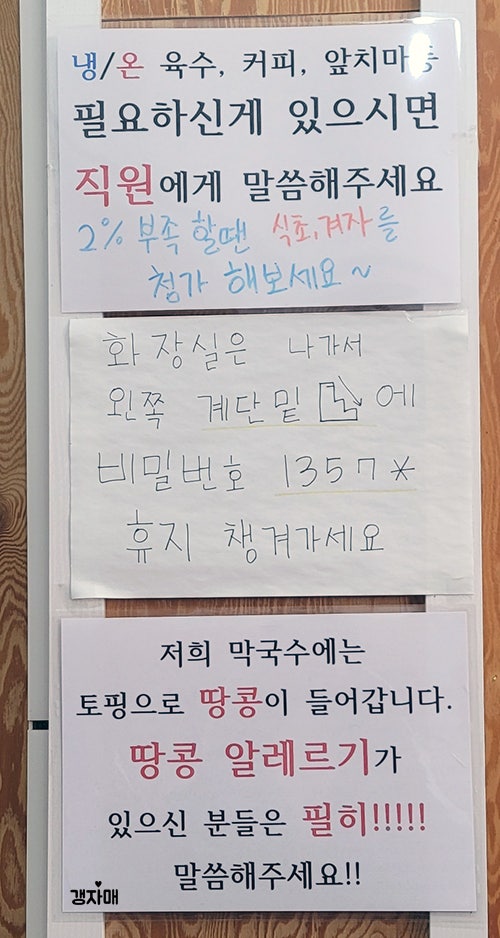 냉/온 육수, 커피, 앞치마등
필요하신게 있으시면
직원에게 말씀해주세요
2% 부족 할땐 식초,겨자를
첨가 해보세요~
화장실은 나가서
왼쪽 계단밑 에
비밀번호 1357*
휴지 챙겨가세요
저희 막국수에는
토핑으로 땅콩이 들어갑니다.
땅콩 알레르기가
있으신 분들은 필히!!!!!
말씀해주세요!!
갱자매